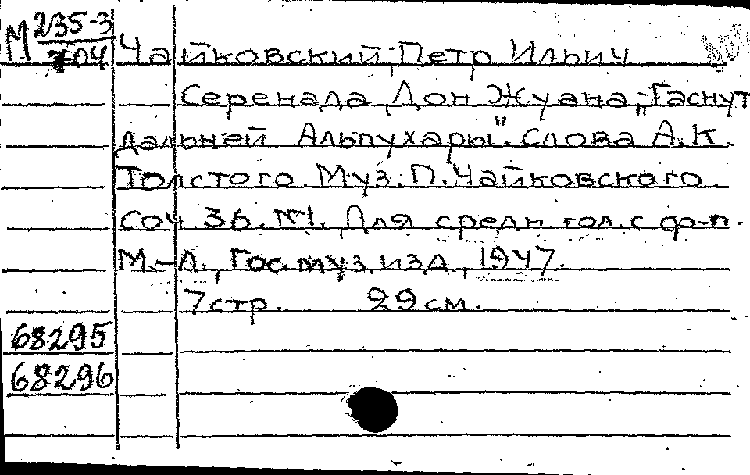 М 235-3
704
Чайковский, Петр Ильич
Серенада Дон Жуана, "Гаснут
дальней Альпухары". Слова А.К.
Толстого. Муз. П. Чайковского.
Соч 38. №1. Для средн гол. с ф-п.
М.-Л., Гос. муз. изд, 1947.
7 стр. 29 см.
68295
68296